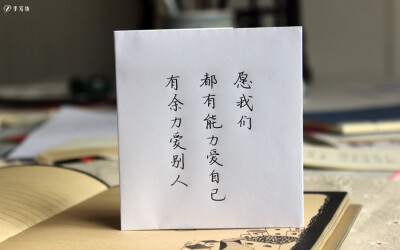 手写侠
愿我们
都有能力爱自己
有余力爱别人